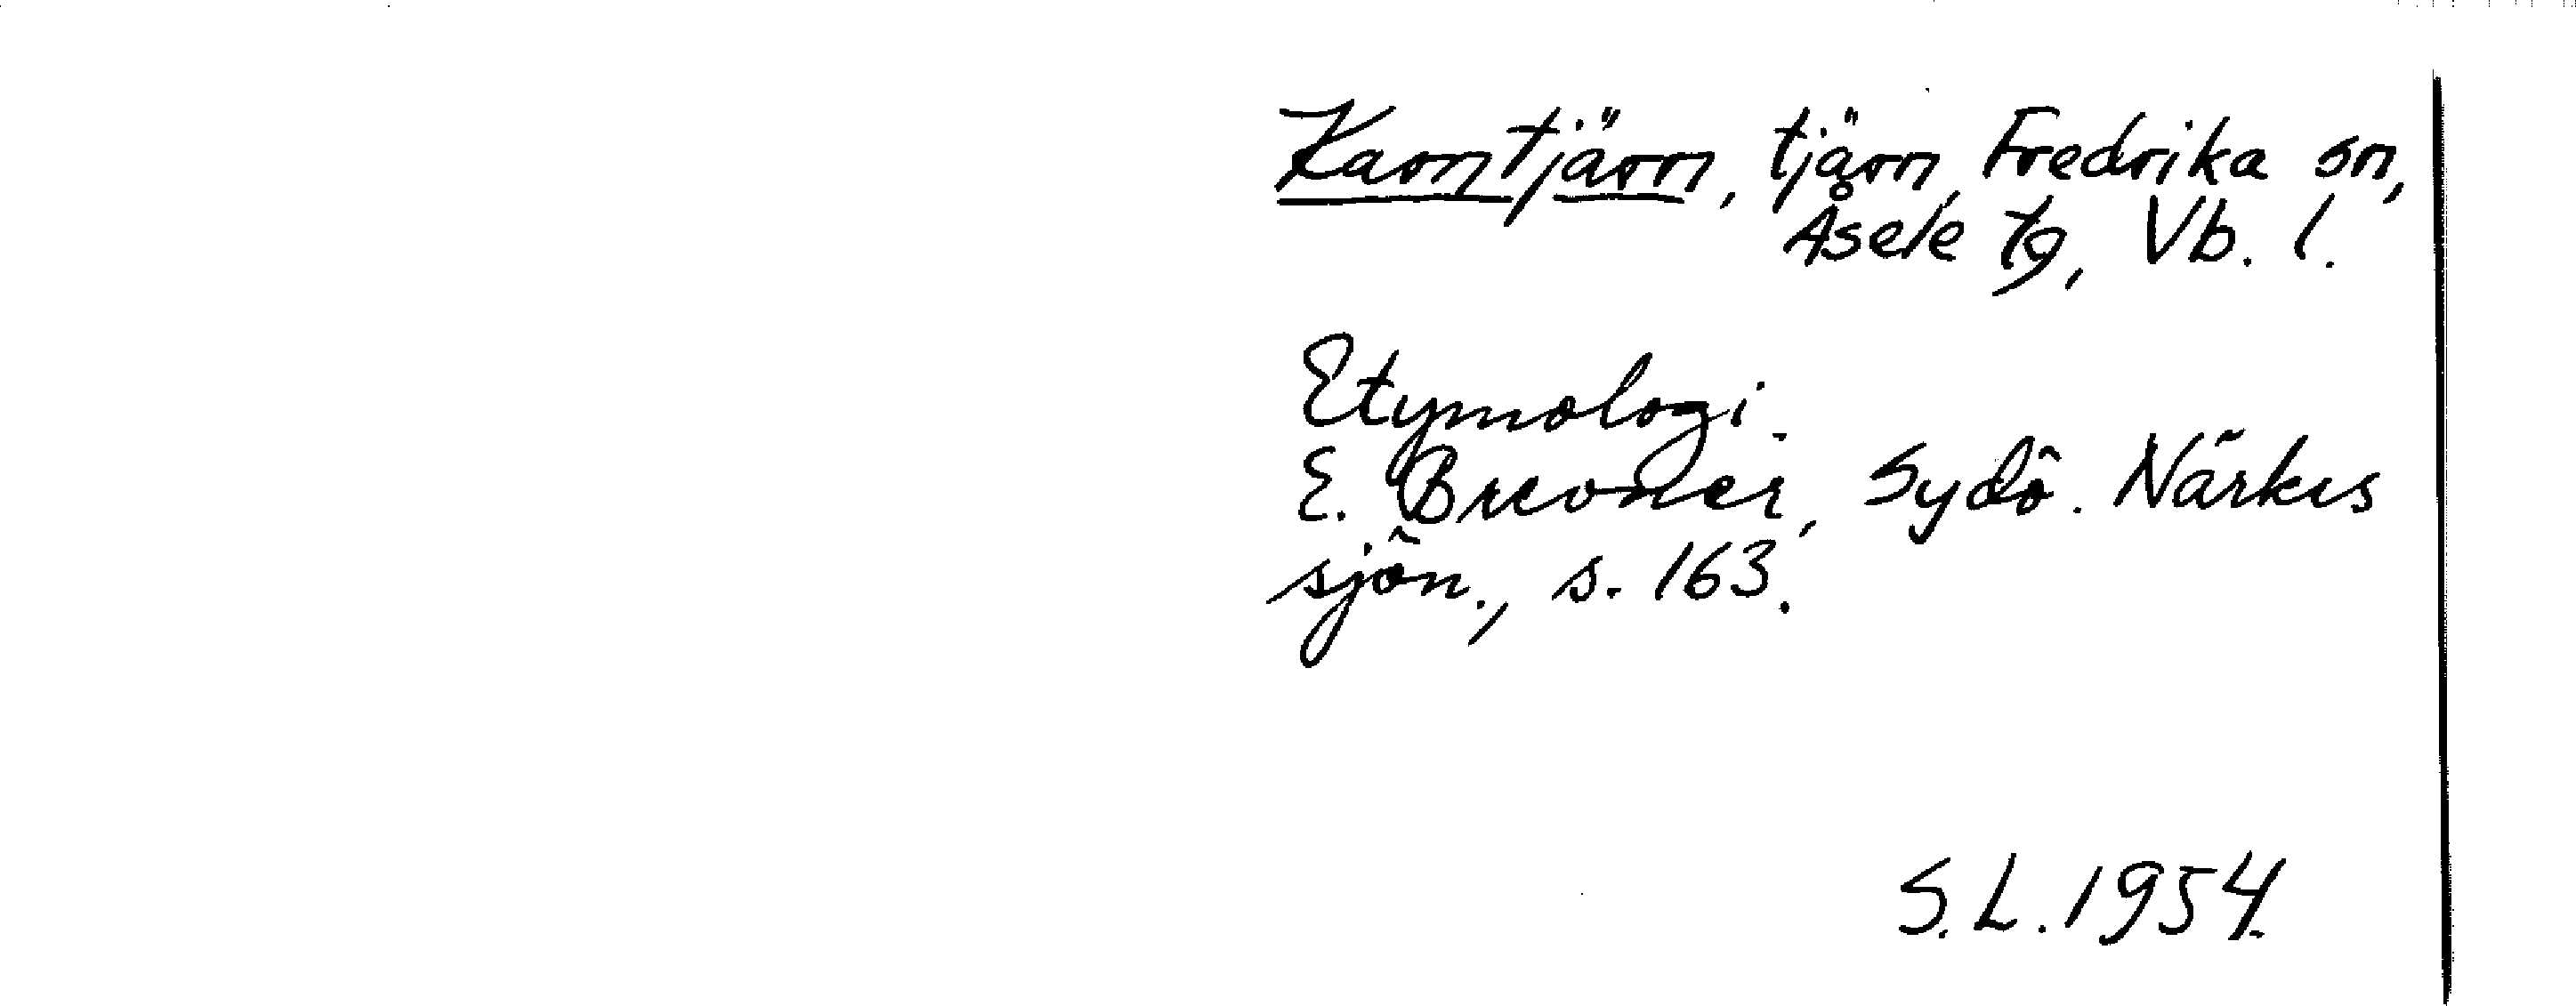 Karntjärn, tjärn, Fredrika sn,
Åsele tg, Vb. l.
Etymologi.
E. Brevner, Sydö. Närkes
sjön., s. 163.
S.L. 1954.